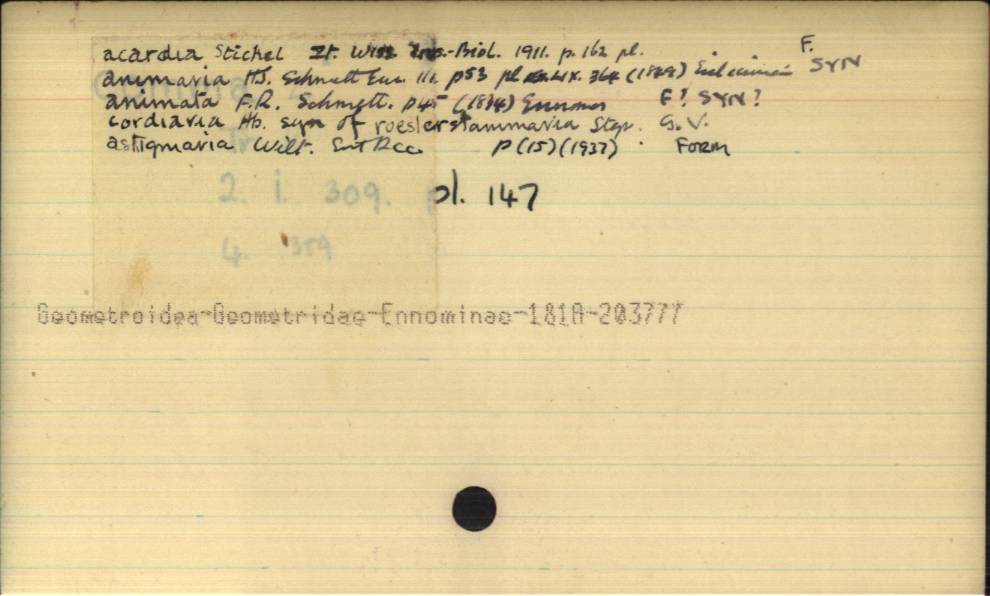 acardia Stichel Zt. Wiss. Ins.-Biol. 1911. p. 162 pl. F.
animaria HS. Schmett Eur. p53 pl 364 SYN
animata F.R. Schmett. p45 (1834) Ennomos F? SYN?
cordiaria Hb. syn of roeslerstammaria Stgr. G.V.
astigmaria Wilt. Ent Rec. p(15)(1937) FORM
pl. 147
2. i. 309.
4. 359
Geometroidea-Geometridae-Ennominae-181A-203777